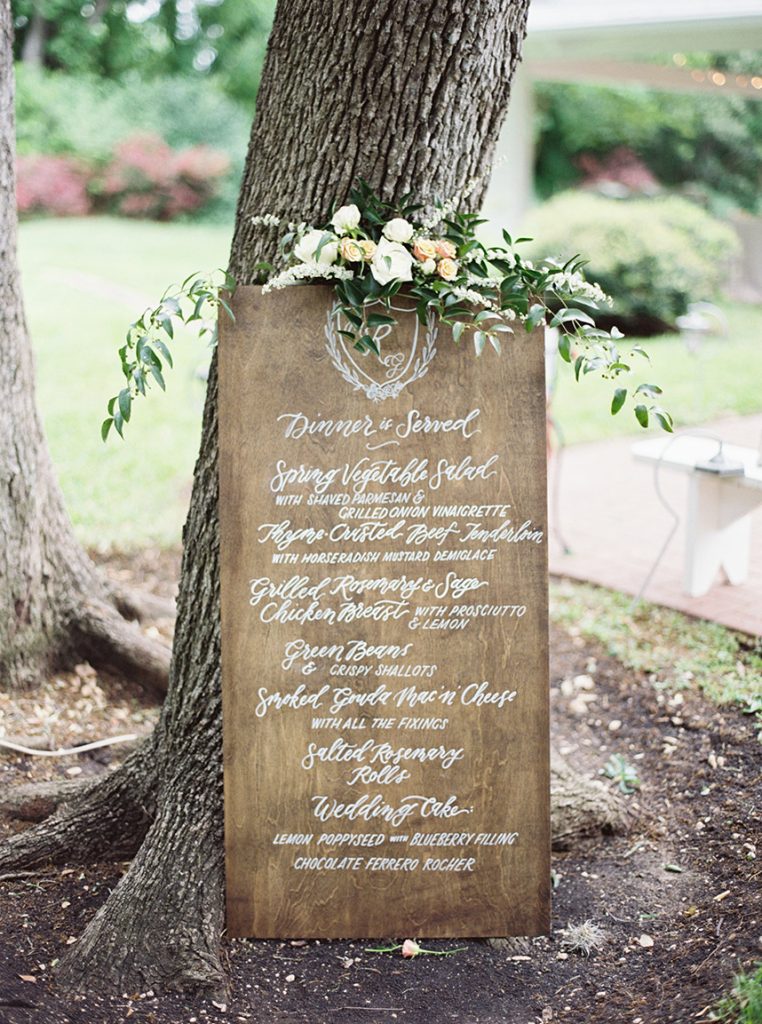 R
&G
Dinner is Served
Spring Vegetable Salad
WITH SHAVED PARMESAN &
GRILLED ONION VINAIGRETTE
Thyme Crusted Beef Tenderloin
WITH HORSERADISH MUSTARD DEMIGLACE
Grilled Rosemary & Sage
Chicken Breast WITH PROSCIUTTO
& LEMON
Green Beans
& CRISPY SHALLOTS
Smoked Gouda Mac 'n' Cheese
WITH ALL THE FIXINGS
Salted Rosemary
Rolls
Wedding Cake:
LEMON POPPYSEED WITH BLUEBERRY FILLING
CHOCOLATE FERRERO ROCHER